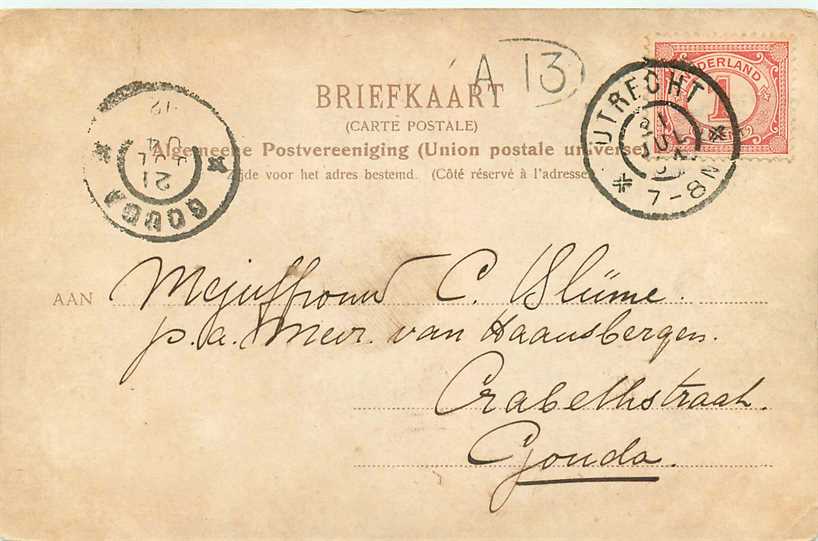 A 13
BRIEFKAART
(CARTE POSTALE)
Algemeene Postvereeniging (Union postale universelle)
Zijde voor het adres bestemd. (Côté réservé à l'adresse
NEDERLAND
1
UTRECHT
21
JUL
7-8 N
GOUDA
21
JUL
04
AAN Mejuffrouw C. Blüme.
p.a. Mevr. van Haansbergen.
Crabethstraat.
Gouda.